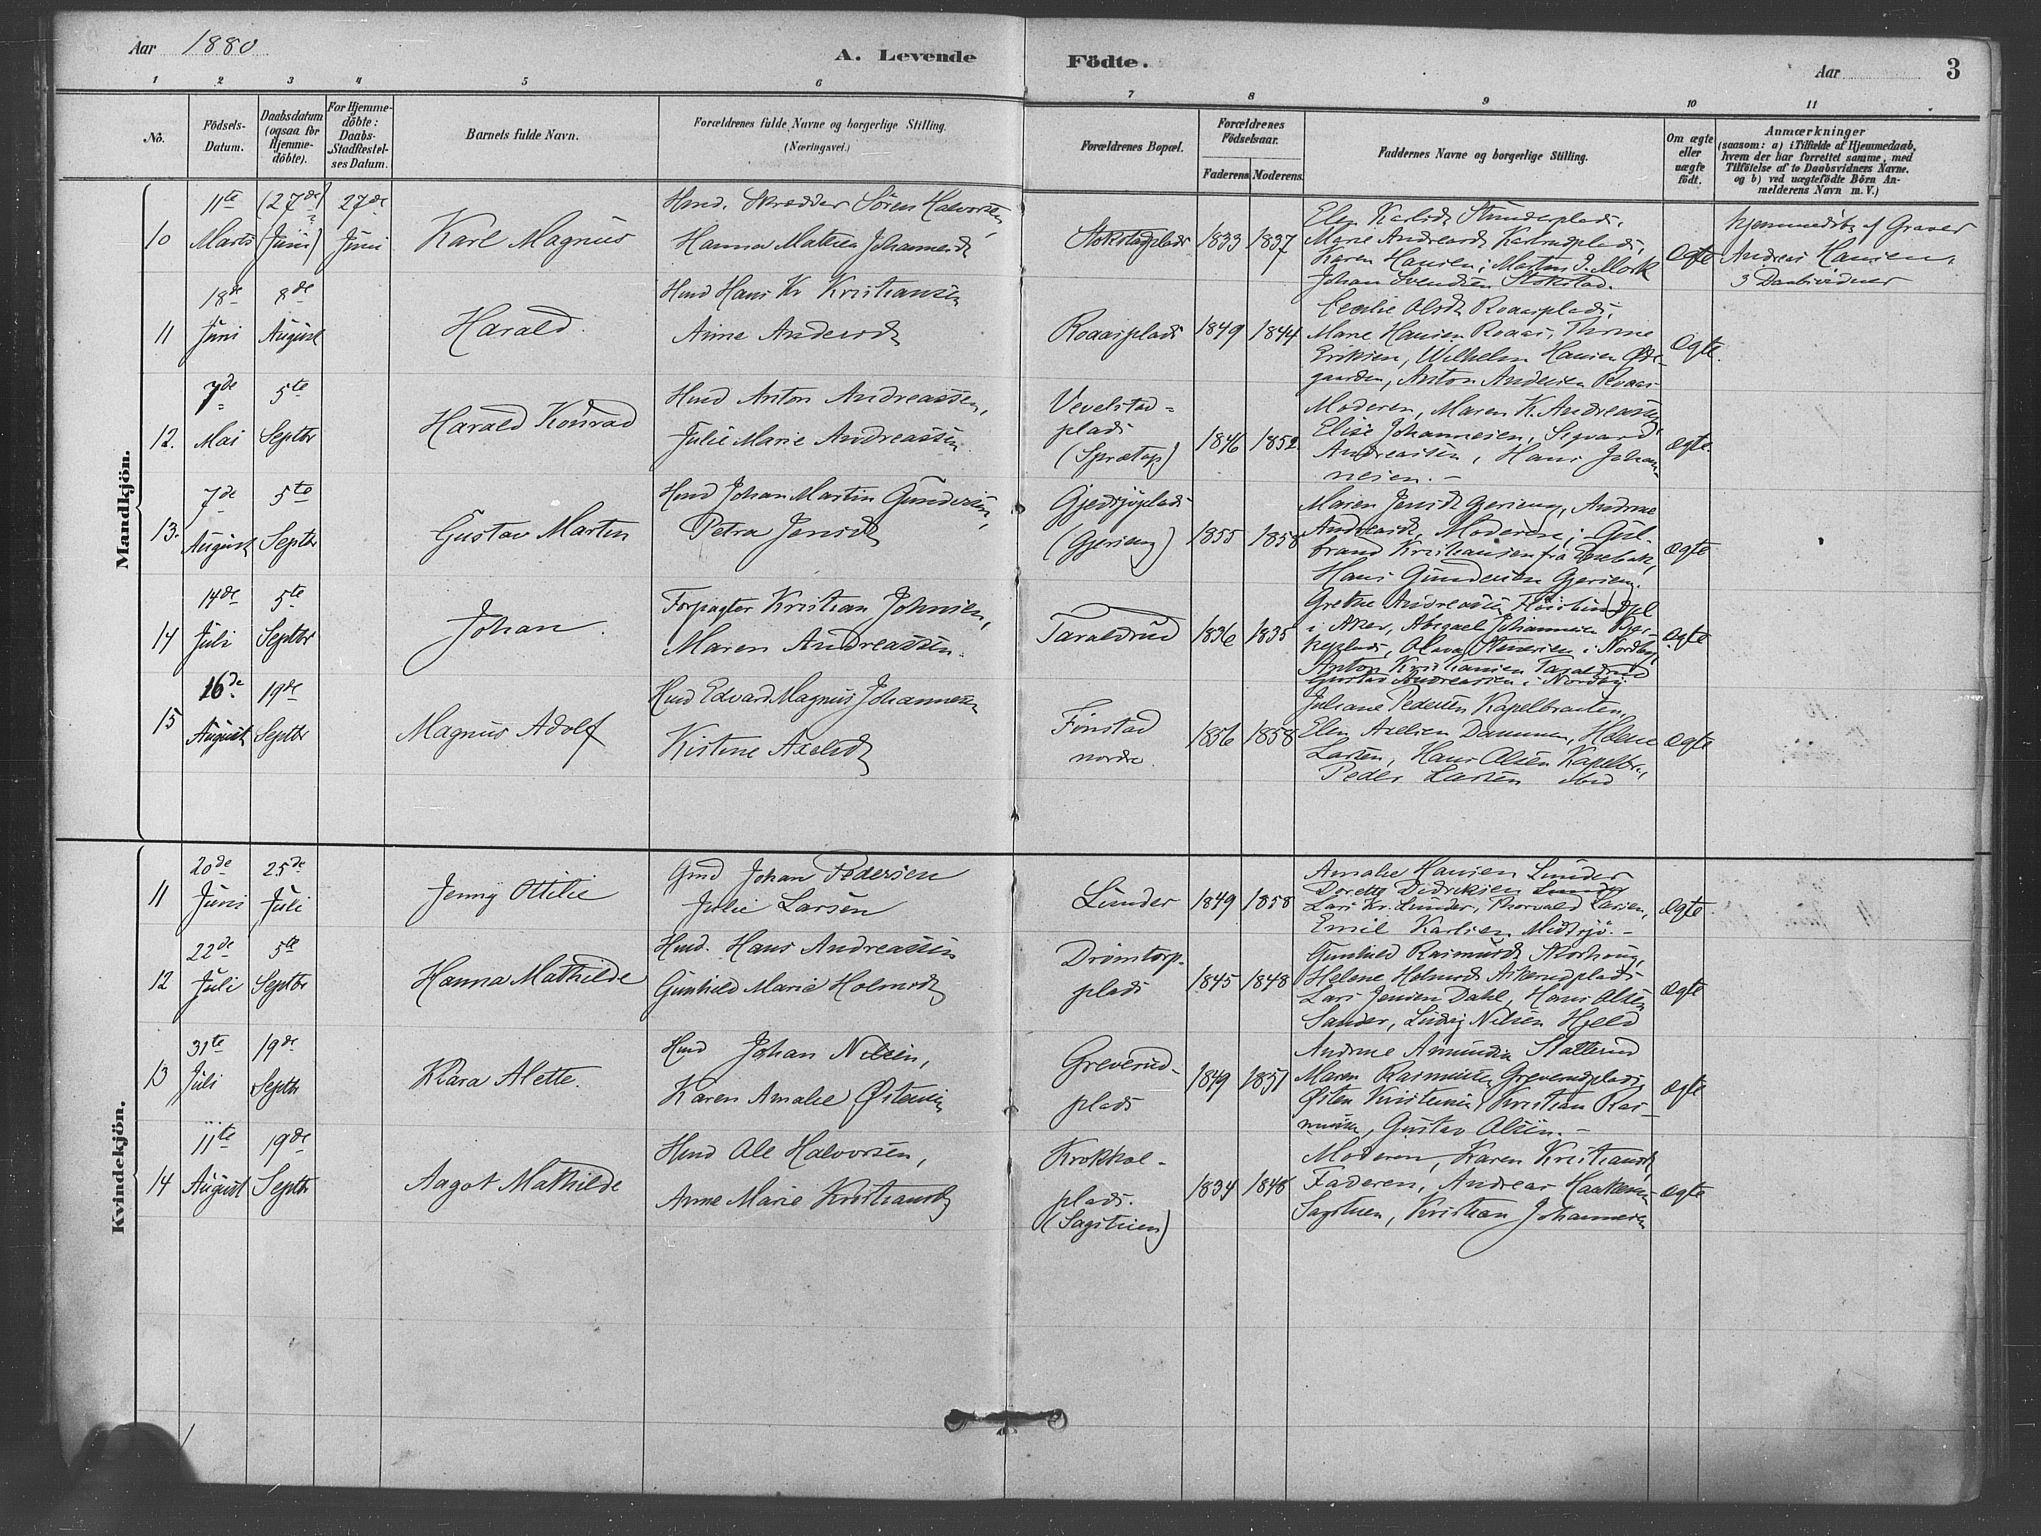 Aar 1880
A. Levende Födte.
Aar
3
1 2 3 4 5 6 7 8 9 10 11
No.
Födsels-Datum.
Daabsdatum (ogsaa for Hjemme-döbte).
For Hjemme-döbte: Daabs-Stadfestel-ses Datum.
Barnets fulde Navn.
Forældrenes fulde Navne og borgerlige Stilling. (Næringsvei.)
Forældrenes Bopæl.
Forældrenes Födselsaar.
Faderens. Moderens.
Faddernes Navne og borgerlige Stilling.
Om ægte eller uægte födt.
Anmærkninger
(saasom: a) i Tilfælde af Hjemmedaab,
hvem der har forrettet samme, med
Tilföielse af to Daabsvidners Navne.
og b) ved uægtefödte Börn An-
melderens Navn m. V.)
Mandkjön.
10
11te Marts
(27de Juni)
27de Juni
Karl Magnus
Hmd. Skrædder Sören Halvorsen,
Hanna Mathea Johannesd
Stokstadplads
1833 1837
Elen Karlsd
Marie Andreasd
Karen Hansen; Martin J. Mork
Johan Svendsen Stokstad.
Ægte
Hjemmedöbt af Graver
Andreas Hansen.
3 Daabsvidner
11
18de Juni
8de August
Harald.
Hmd Hans Kr Kristiansen
Anne Andersd
Roaasplads
1849 1844
Cecilie Olsd Roaasplads,
Marie Hansen Roaas, Thrine
Eriksen, Wilhelm Hansen Øde-
gaarden, Anton Andersen Roaas
Ægte.
12.
7de Mai
5te Septbr
Harald Konrad
Hmd Anton Andreassen,
Julie Marie Andreassen.
Vevelstad-
plads
(Sprætop)
1846 1852.
Moderen, Maren K. Andreassen
Elise Johannesen, Sigvard
Andreassen, Hans Johan-
nesen. -
Ægte.
13.
7de August
5te Septbr
Gustav Martin
Hmd Johan Martin Gundersen,
Petra Jensd
Gjedsjöplads
(Gjerseng)
1855 1858
Maren Jensd Gjerseng, Andrine
Andreasd, Moderen; Gul-
brand Kristiansen fra Enebak,
Hans Gundersen Gjerseng.
Ægte
14
14de Juli
5te Septbr
Johan.
Forpagter Kristian Johnsen,
Maren Andreassen.
Taraldrud
1836 1835
Grethe Andreassen
i Aker, Abigael Johannesen
Olava Stenersen i Nordby,
Anton Kristiansen Taraldrud
Gustav Andreassen i Nordby.
Ægte
15
16de August
19de Septbr
Magnus Adolf
Hmd Edvard Magnus Johannesen
Kistine Axelsd
Finstad
nordre.
1856 1858
Juliane Pedersen Kapelbraaten,
Elen Axelsen Dammen, Helene
Larsen, Hans Olsen Kapelbr.,
Peder Larsen ibid
Ægte
Kvindekjön.
11
20de Juni
25de Juli
Jenny Ottilie
Gmd Johan Pedersen
Julie Larsen
Lunder
1849 1858
Amalie Hansen Lunder
Dorette Didriksen Lunder
Lars Kr. Lunder, Thorvald Larsen,
Emil Karlsen Midtsjö. -
Ægte.
12
22de Juli
5te Septbr
Hanna Mathilde
Hmd. Hans Andreassen
Gunhild Marie Holmsd
Drömtorp-
plads
1845 1848
Gunhild Rasmusd
Helene Holmsd
Lars Jensen Dahl, Hans Olsen
Sander, Ludvig Nilsen Hjeld
Ægte
13
31te Juli
19de Septbr
Klara Alette.
Hmd Johan Nilsen,
Karen Amalie Østensen
Greverud-
plads
1849 1851
Andrine Amundsen Slatterud
Maren Rasmussen Greverudplads,
Østen Kristensen, Kristian Ras-
mussen, Gustav Olsen. -
Ægte
14
11te August
19de Septbr
Aagot Mathilde
Hmd Ole Halvorsen,
Anne Marie Kristiansd
Krokhol-
plads.
(Sagstuen)
1834 1848
Moderen, Karen Kristiansd,
Faderen, Andreas Haakensen
Sagstuen, Kristian Johannesen
Ægte